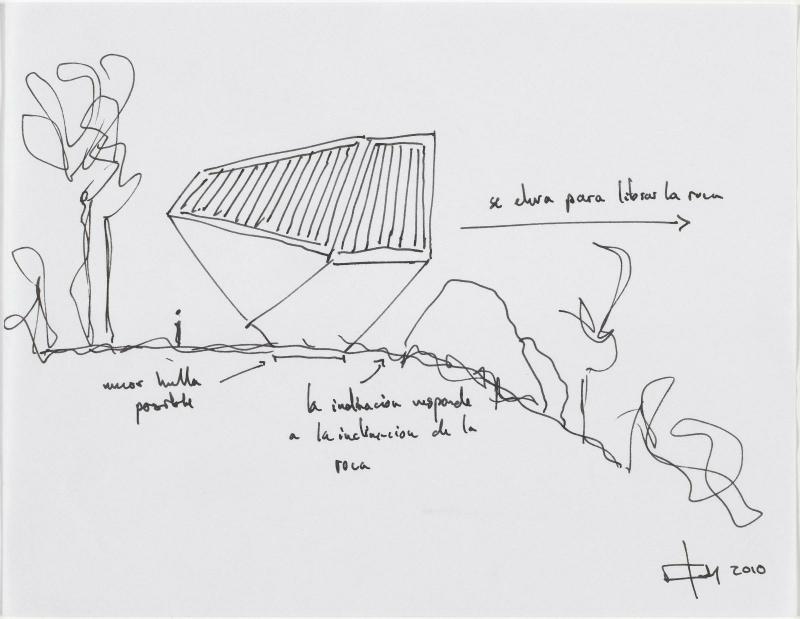 se eleva para librar la roca
menor huella
posible
la inclinacion responde
a la inclinacion de la
roca
2010